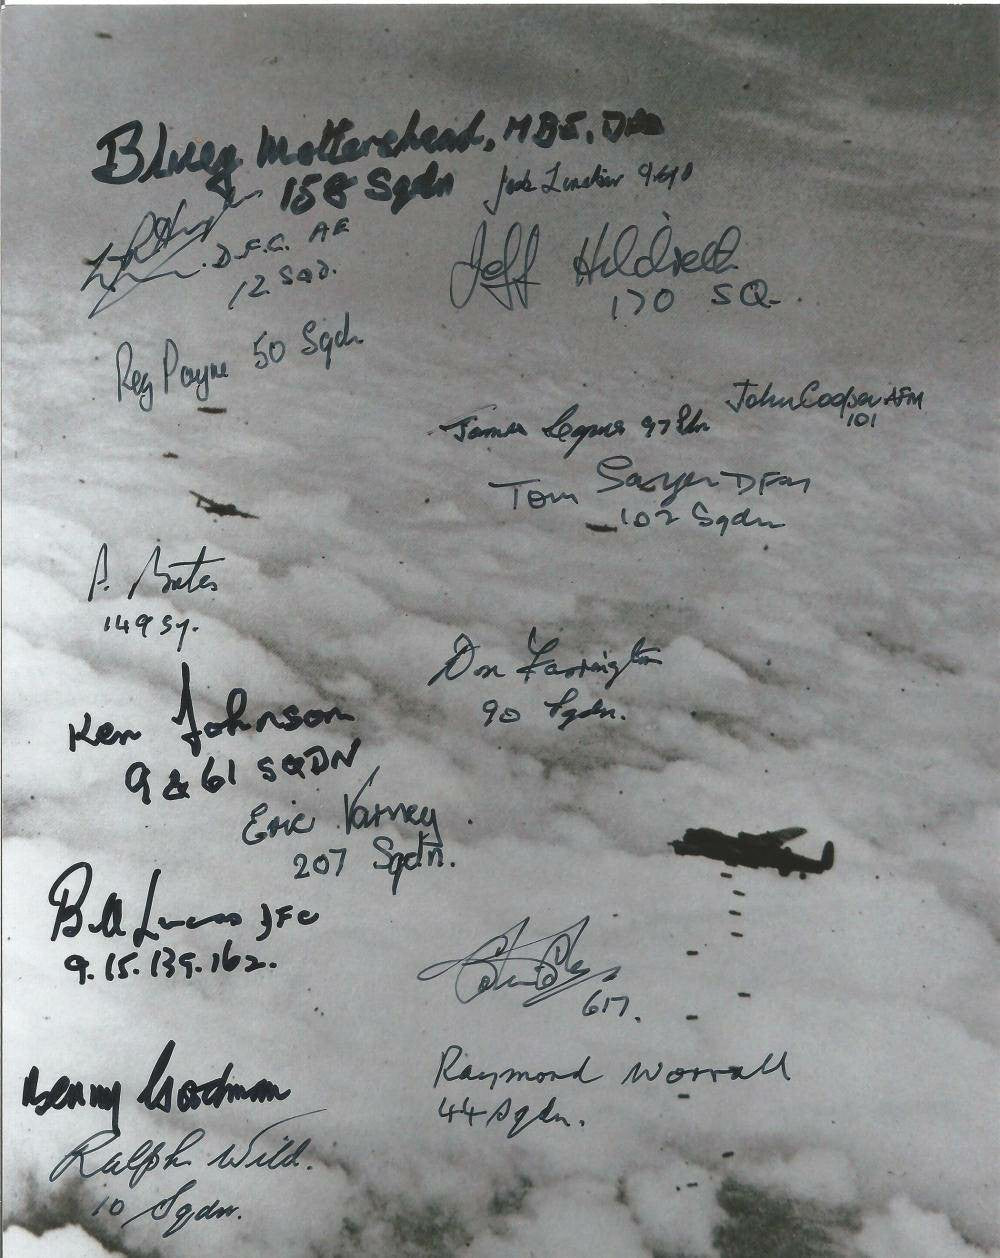 Bluey Mottershead, MBE, DFC
158 Sqdn
D.F.C. AE
12 SQD.
Jeff Hildreth
170 SQ.
Reg Payne 50 Sqdn
John Cooper AFM
101
James 97 Sdn
Tom Sayer DFM
102 Sqdn
Bates
149 Sq.
Don Farrington
90 Sqdn.
Ken Johnson
9 & 61 SQDN
Eric Varney
207 Sqdn.
Bill Lucas DFC
9.15.139.162.
617.
Raymond Worrall
44 Sqdn.
Benny Goodman
Ralph Wild.
10 Sqdn.